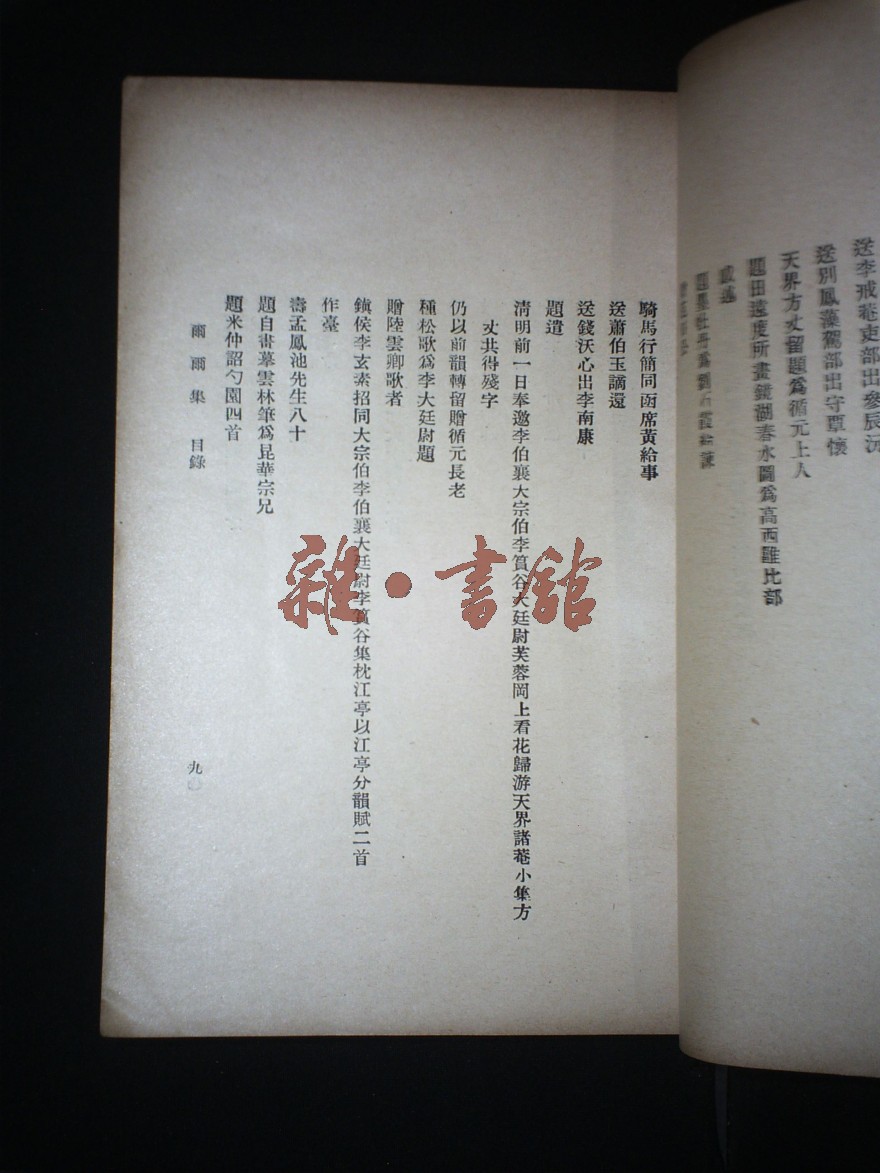 送李戒菴吏部出參辰沅
送別鳳藻駕部出守覃懷
天界方丈留題爲循元上人
題田遠度所畫鏡湖春水圖爲高西雖比部
感遇
題墨牡丹爲劉石霞給諫
騎馬行簡同函席黃給事
送蕭伯玉謫還
送錢沃心出李南康
題遺
清明前一日奉邀李伯襄大宗伯李篔谷大廷尉芙蓉岡上看花歸游天界諸菴小集方
丈共得殘字
仍以前韻轉留贈循元長老
種松歌爲李大廷尉題
贈陸雲卿歌者
鎮侯李玄素招同大宗伯李伯襄大廷尉李篔谷集枕江亭以江亭分韻賦二首
作臺
壽孟鳳池先生八十
題自書摹雲林筆爲昆華宗兄
題米仲詔勺園四首
爾爾集 目錄
九
雜·書館